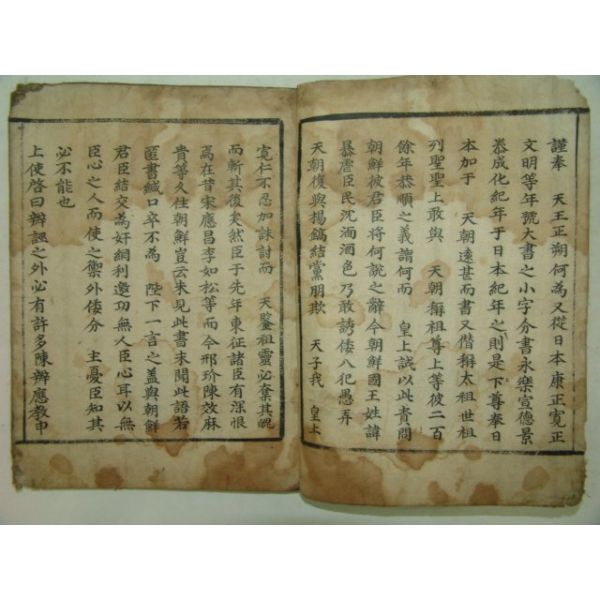 謹奉　天王正朔何為又從日本康正寬正
文明等年號大書之小字分書永樂宣德景
泰成化紀年于日本紀年之下則是尊奉日
本加于　天朝遠甚而書又僭稱太祖世祖
列聖聖上敢與　天朝稱祖尊上等彼二百
餘年恭順之義謂何而　皇上試以此責問
朝鮮彼君臣將何說之辭今朝鮮國王姓諱
暴虐臣民沈湎酒色乃敢誘倭入犯愚弄
天朝復與楊鎬結黨朋欺　天子我　皇上
寬仁不忍加誅討而　天鑒祖靈必奪其魄
而斬其後矣然臣于先年東征諸臣有深恨
焉在昔宋應昌李如松等而今邢玠陳效麻
貴等久住朝鮮豈云未見此書未聞此語若
匿書緘口卒不為　陛下一言之盖與朝鮮
君臣結交為奸網利邀功無人臣心耳以無
臣心之人而使之禦外倭分　主憂臣知其
必不能也
上使啓曰辨誣之外必有許多陳辨應教申